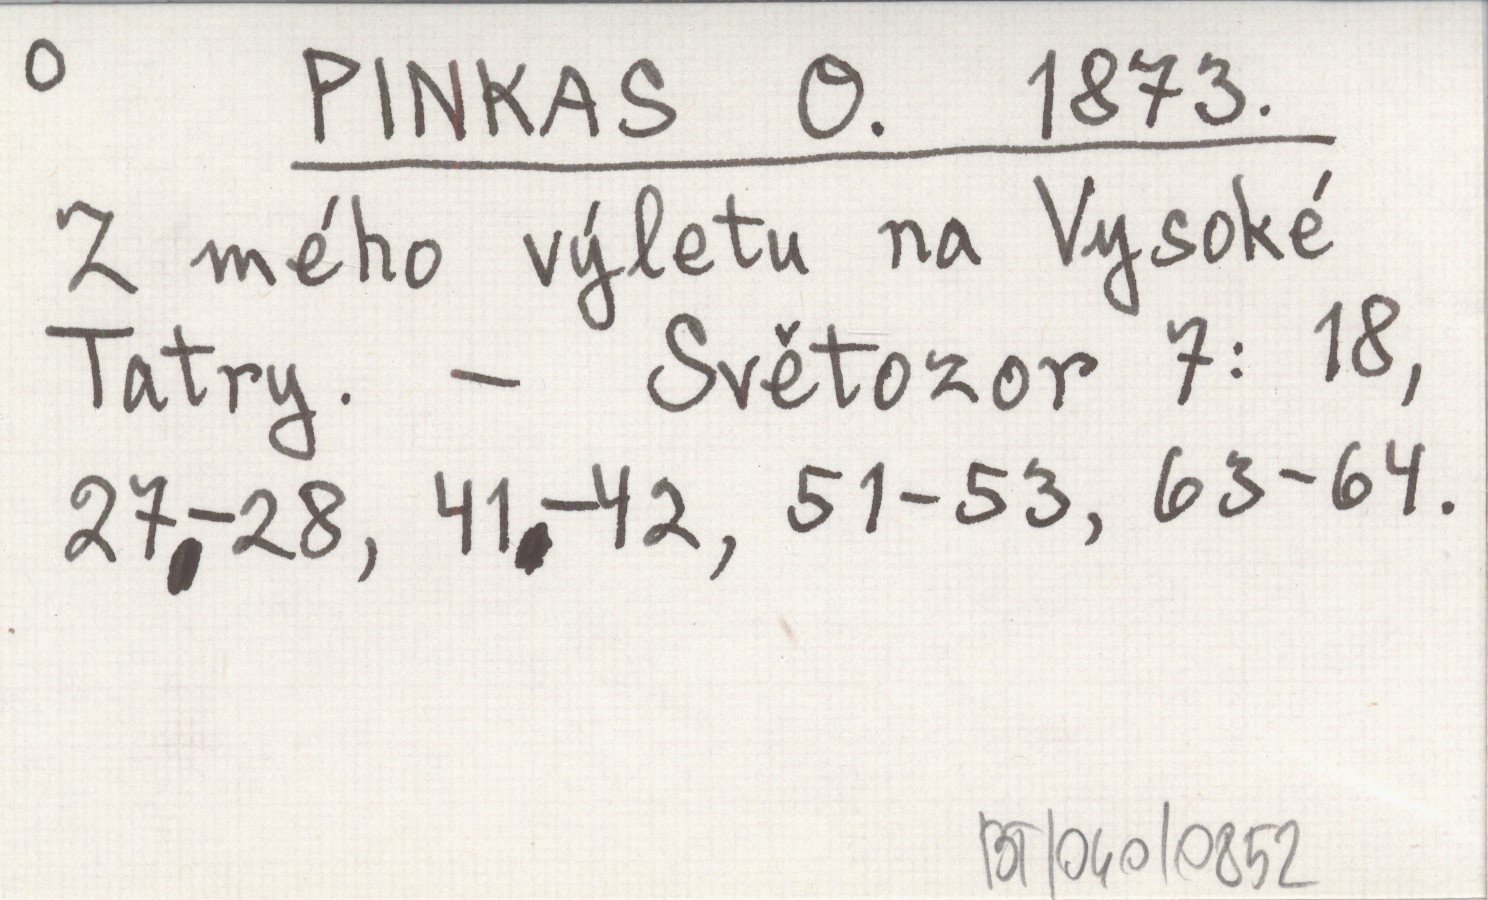 O PINKAS O. 1873.
Z mého výletu na Vysoké
Tatry. – Světozor 7: 18,
27–28, 41–42, 51–53, 63–64.
BT/040/0852